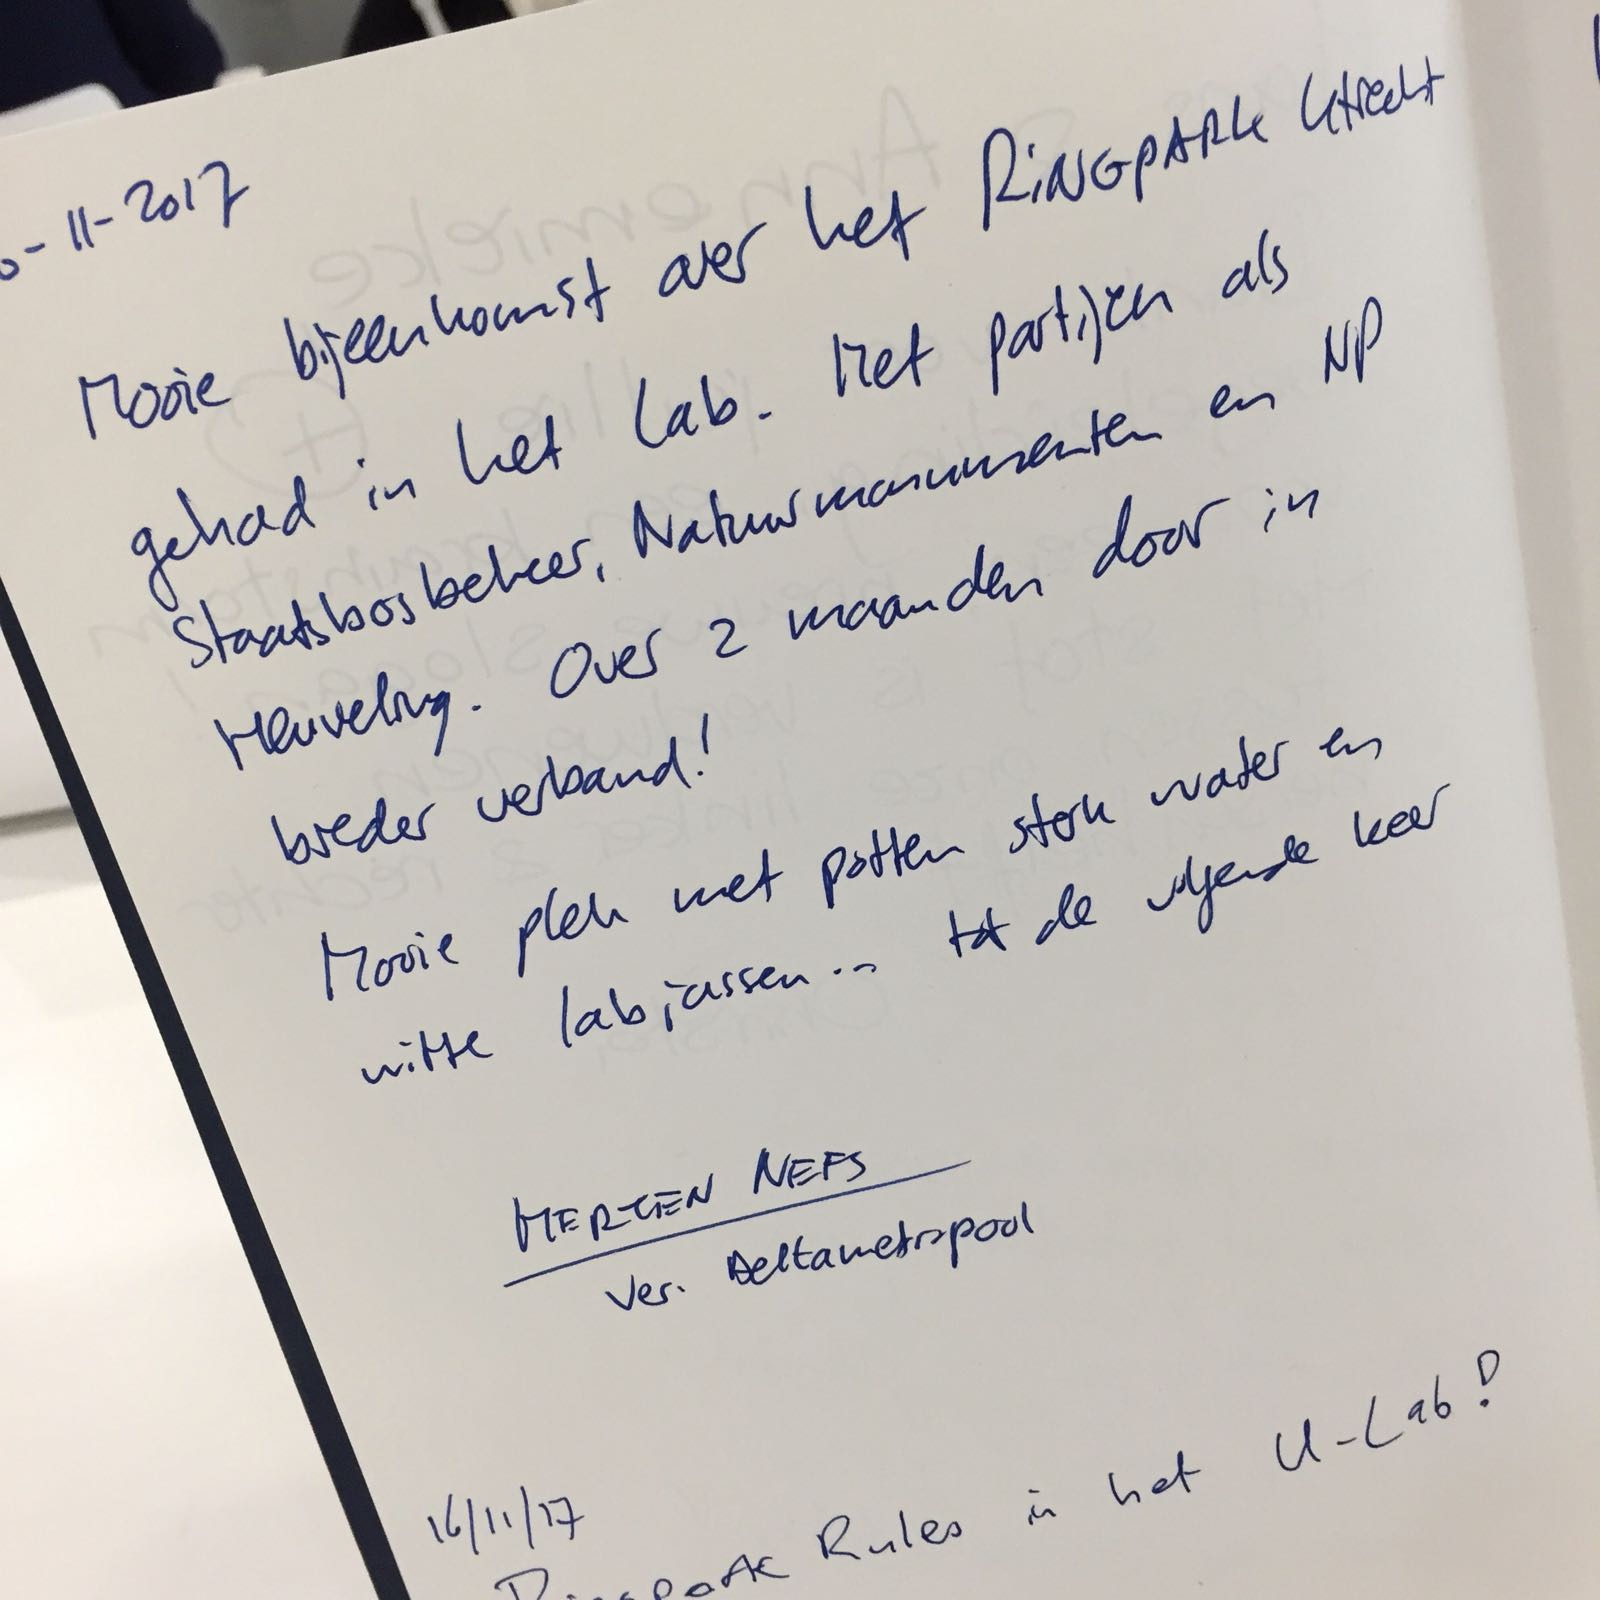 -11-2017
Mooie bijeenkomst over het RINGPARK Utrecht
gehad in het Lab. Met partijen als
Staatsbosbeheer, Natuurmonumenten en NP
Heuvelrug. Over 2 maanden door in
breder verband!
Mooie plek met potten sterk water en
witte labjassen... tot de volgende keer
MERTEN NEFS
Ver. Deltametropool
16/11/17
Ringpark Rules in het U-Lab!